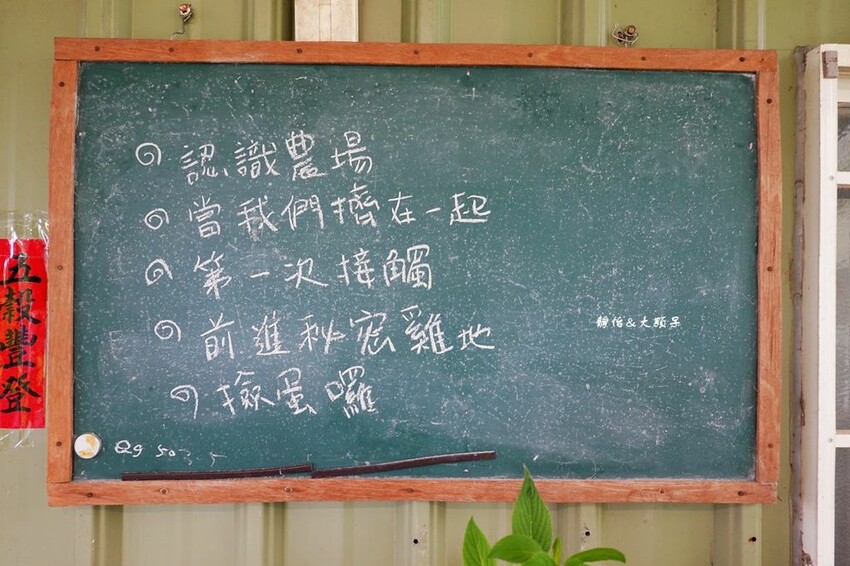 認識農場
當我們擠在一起
第一次接觸
前進秘密雞地
撿蛋囉
五穀豐登
靜怡&大顆呆